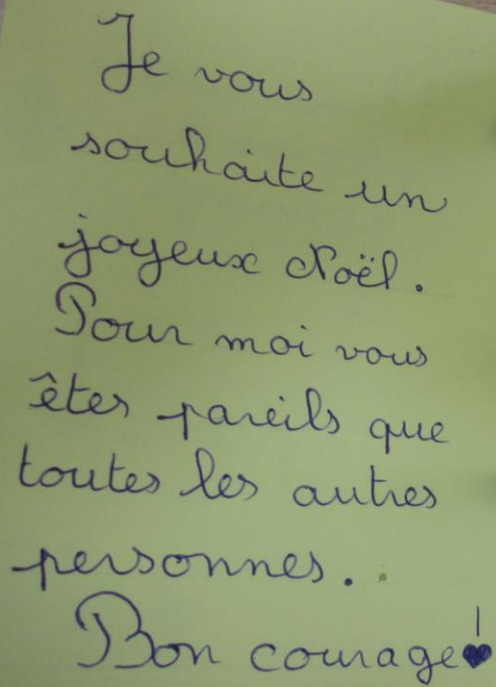 Je vous
souhaite un
joyeux Noël.
Pour moi vous
êtes pareils que
toutes les autres
personnes.
Bon courage!